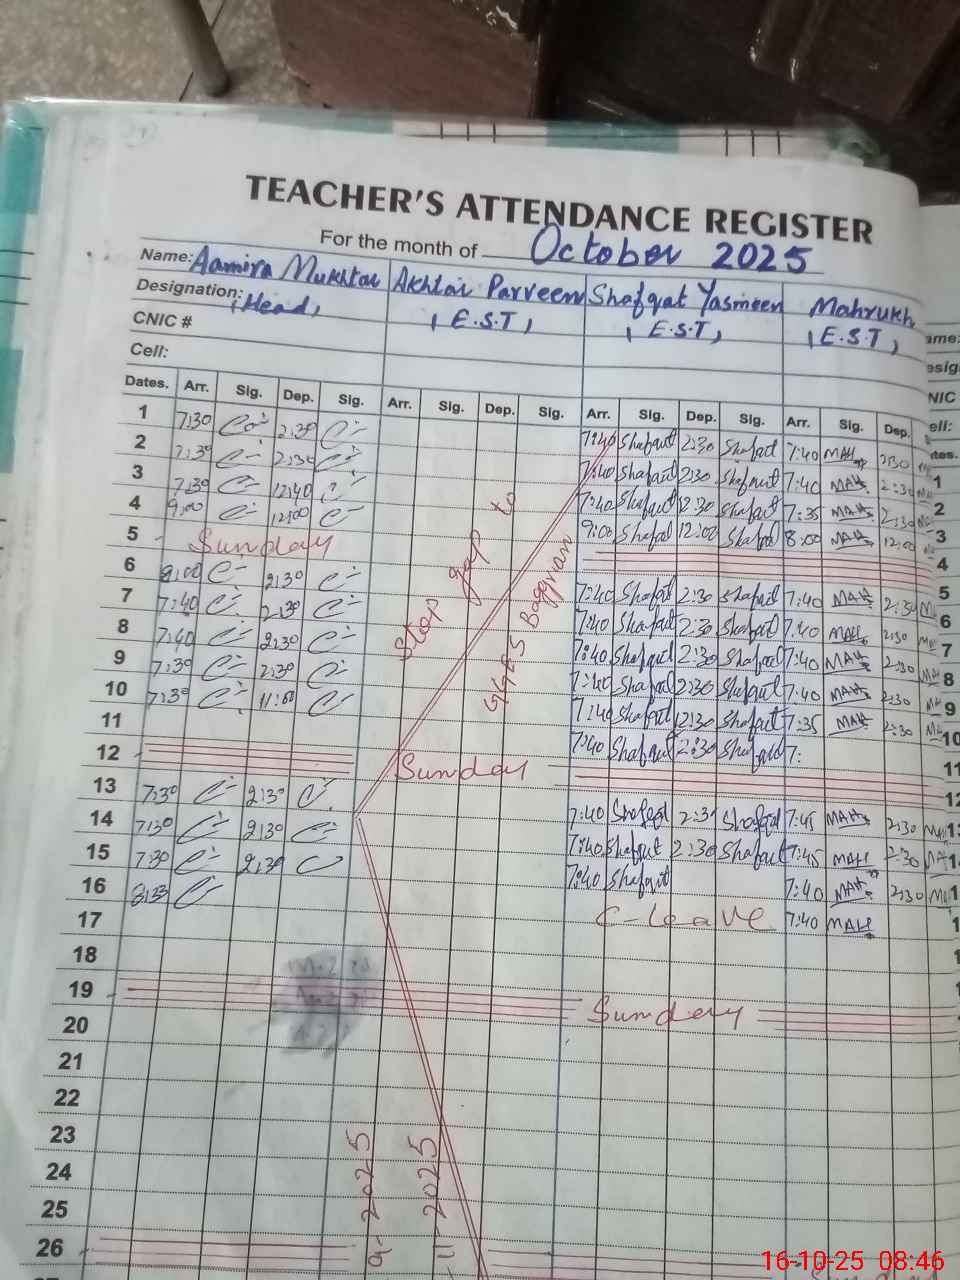 TEACHER'S ATTENDANCE REGISTER
For the month of October 2025
Name: Aamira Mukhtar Akhtar Parveen Shafqat Yasmeen Mahrukh
Designation: (Head) (E.S.T) (E.S.T) (E.S.T)
CNIC #
Cell:
Dates. Arr. Sig. Dep. Sig. Arr. Sig. Dep. Sig. Arr. Sig. Dep. Sig. Arr. Sig. Dep.
1 7:30 2:30 7:40 Shafqat 2:30 Shafqat 7:40 MAH 2:30
2 7:30 2:30 7:40 Shafqat 2:30 Shafqat 7:40 MAH 2:30
3 7:30 12:40 7:40 Shafqat 2:30 Shafqat 7:35 MAH 2:30
4 9:00 12:00 9:00 Shafqat 12:00 Shafqat 8:00 MAH 12:00
5 Sunday
6 8:00 2:30 7:40 Shafqat 2:30 Shafqat 7:40 MAH 2:30
7 7:40 2:30 7:40 Shafqat 2:30 Shafqat 7:40 MAH 2:30
8 7:40 2:30 7:40 Shafqat 2:30 Shafqat 7:40 MAH 2:30
9 7:30 2:30 7:40 Shafqat 2:30 Shafqat 7:40 MAH 2:30
10 7:30 11:00 7:40 Shafqat 2:30 Shafqat 7:35 MAH 2:30
11 7:40 Shafqat 2:30 Shafqat 7:
12 Sunday
13 7:30 2:30 7:40 Shafqat 2:30 Shafqat 7:45 MAH 2:30
14 7:30 2:30 7:40 Shafqat 2:30 Shafqat 7:45 MAH 2:30
15 7:30 2:30 7:40 Shafqat 7:40 MAH 2:30
16 8:33 C-leave 7:40 MAH
17
18
19 Sunday
20
21
22
23
24
25
26
Stop gap to
GGES Baggrian
9-2025
11-2025
16-10-25 08:46